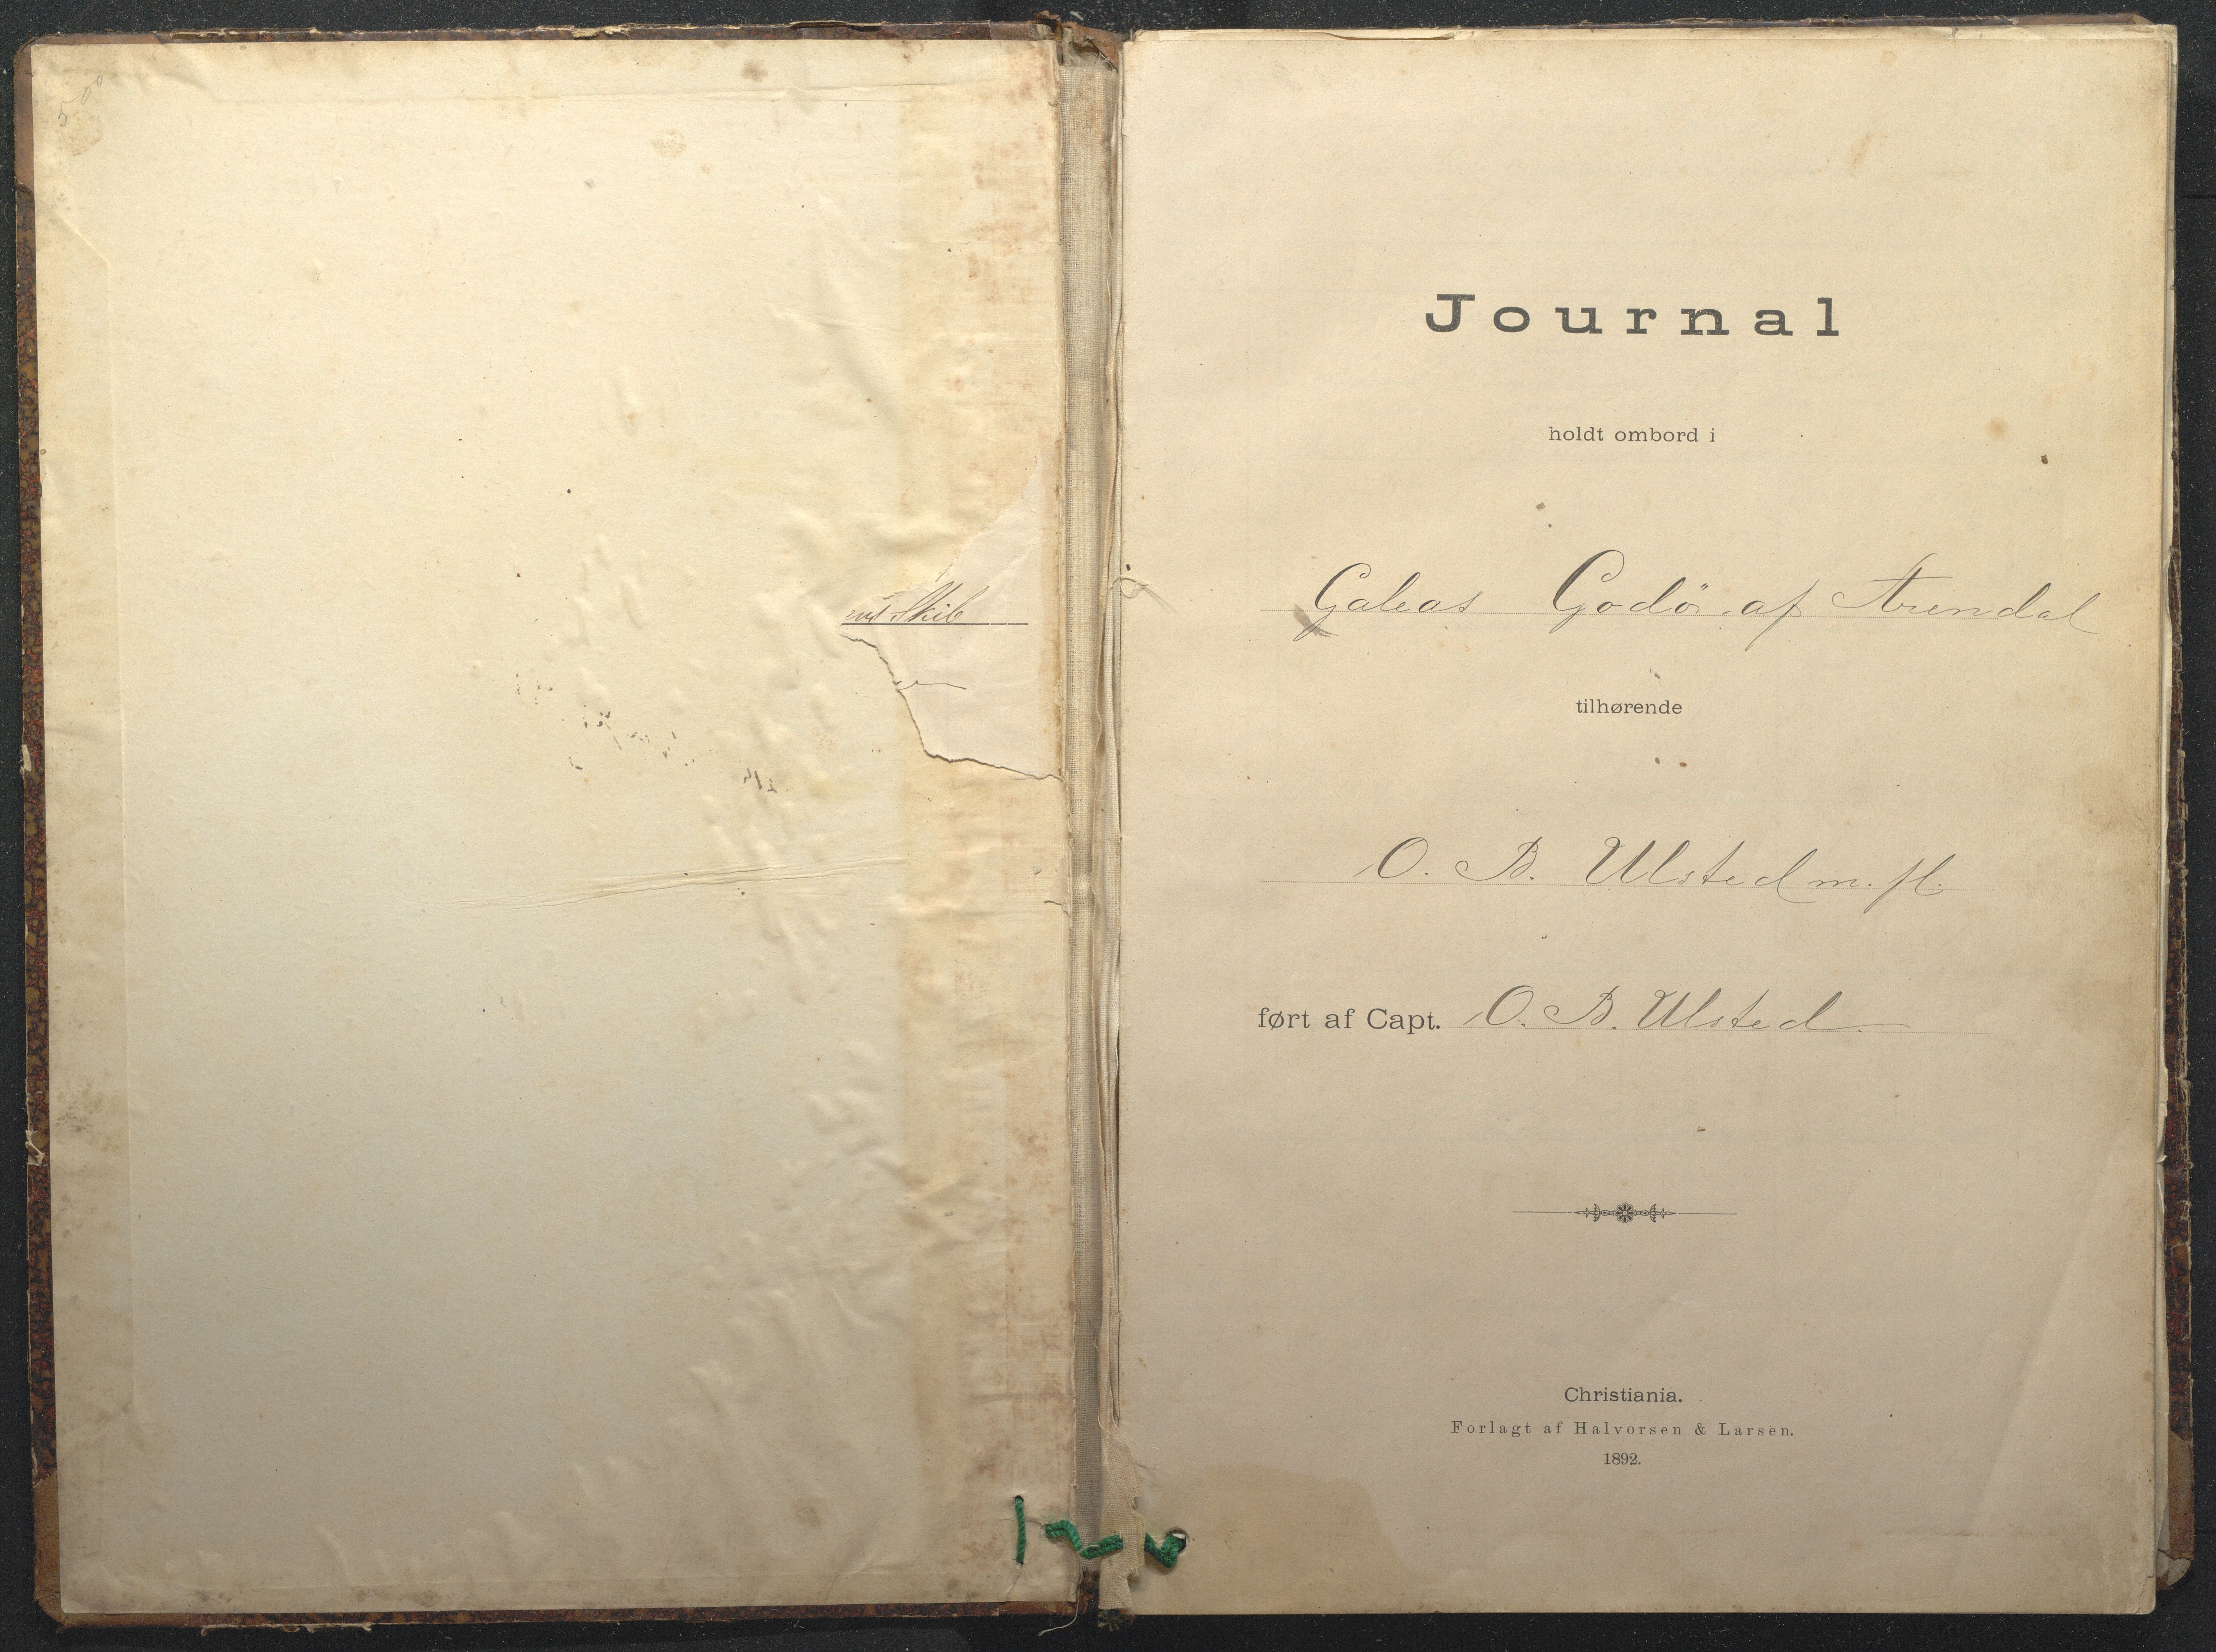 500
Skib
Journal
holdt ombord i
Galeas Godö af Arendal
tilhørende
O. B. Ulsted m. fl.
ført af Capt. O. B. Ulsted
Christiania.
Forlagt af Halvorsen & Larsen.
1892.